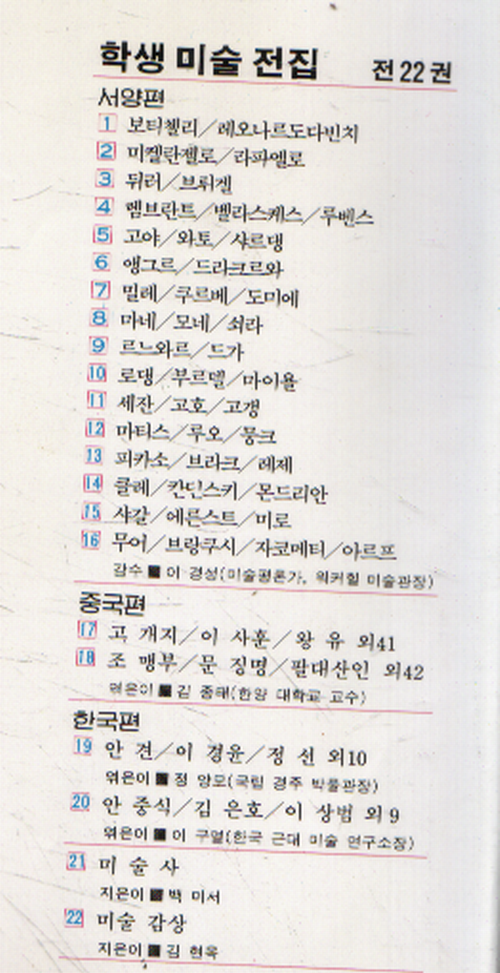 학생 미술 전집 전 22 권
서양편
1 보티첼리/레오나르도다빈치
2 미켈란젤로/라파엘로
3 뒤러/브뤼겔
4 렘브란트/벨라스케스/루벤스
5 고야/와토/샤르댕
6 앵그르/드라크르와
7 밀레/쿠르베/도미에
8 마네/모네/쇠라
9 르느와르/드가
10 로댕/부르델/마이욜
11 세잔/고호/고갱
12 마티스/루오/뭉크
13 피카소/브라크/레제
14 클레/칸딘스키/몬드리안
15 샤갈/에른스트/미로
16 무어/브랑쿠시/자코메티/아르프
감수 ■ 이 경성(미술평론가, 워커힐 미술관장)
중국편
17 고 개지/이 사훈/왕 유 외41
18 조 맹부/문 징명/팔대산인 외42
엮은이 ■ 김 종태(한양 대학교 교수)
한국편
19 안 견/이 경윤/정 선 외10
엮은이 ■ 정 양모(국립 경주 박물관장)
20 안 중식/김 은호/이 상범 외 9
엮은이 ■ 이 구열(한국 근대 미술 연구소장)
21 미 술 사
지은이 ■ 백 미서
22 미술 감상
지은이 ■ 김 현옥